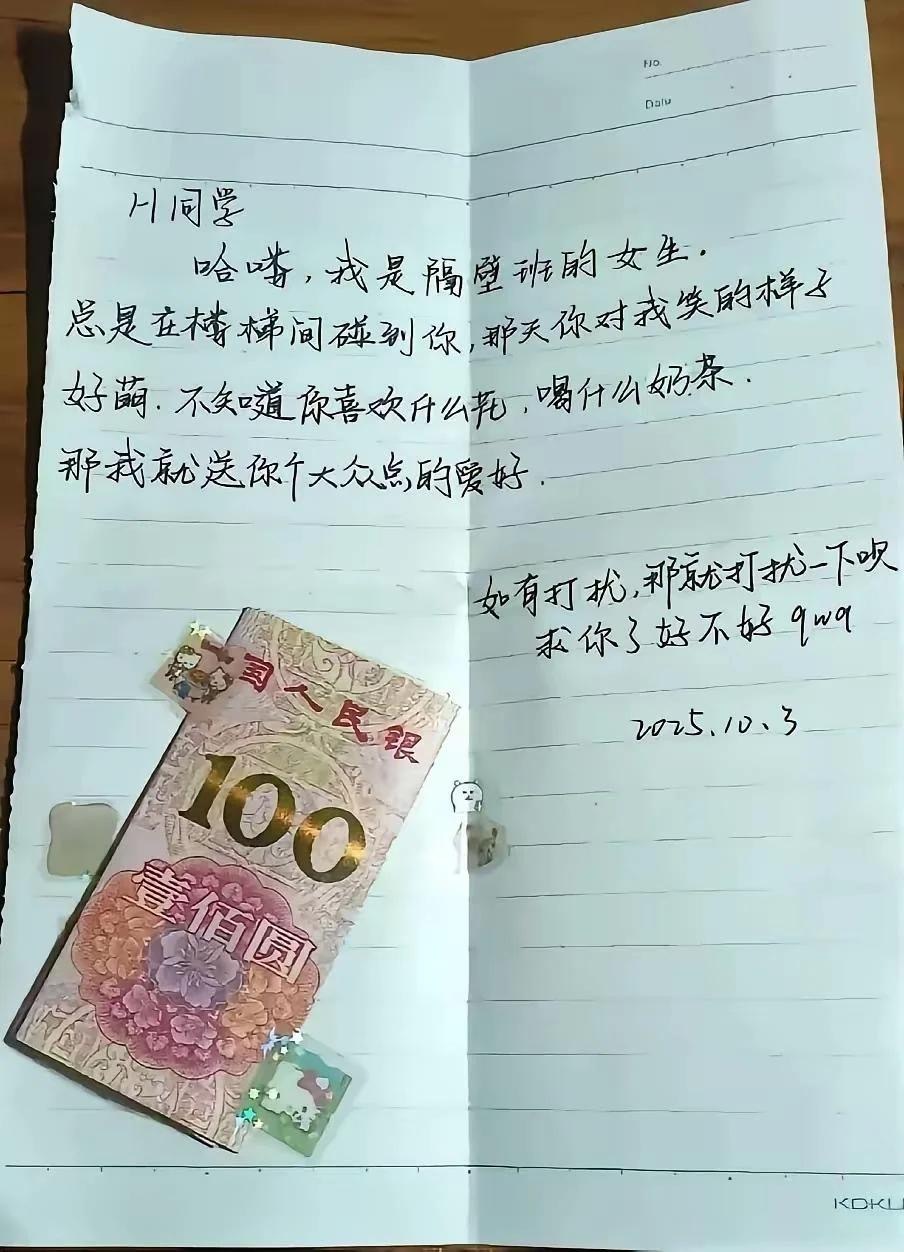 No.
Date
H同学
哈喽,我是隔壁班的女生.
总是在楼梯间碰到你,那天你对我笑的样子
好萌.不知道你喜欢什么花,喝什么奶茶.
那我就送你个大众点的爱好.
如有打扰,那就打扰一下呗
求你了好不好qwq
2025.10.3
国人民银
100
壹佰圆
KOKU